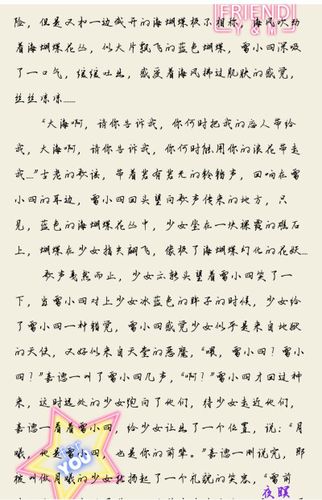 FRIEND!
Y & M
险，但是又和一边戏开的海蝴蝶极不相称，海风吹动
着海蝴蝶花丛，似大片飘飞的蓝色蝴蝶，雷小四深吸
了一口气，缓缓吐出，感受着海风拂过肌肤的感觉，
丝丝凉凉……
“大海啊，请你告诉我，你何时把我的恋人带给
我，大海啊，请你告诉我，你何时能用你的浪花带走
我……”古老的歌谣，带着若有若无的铃铛声，回响在雷
小四的耳边，雷小四回头望向歌声传来的地方，只
见，蓝色的海蝴蝶花丛中，少女坐在一块裸露的礁石
上，蝴蝶在少女指尖翩飞，像极了海蝴蝶幻化的花妖……
歌声戛然而止，少女转头望着雷小四笑了一
下，当雷小四对上少女冰蓝色的眸子的时候，少女给
了雷小四一种错觉，雷小四感觉少女似乎是来自地狱
的天使，又好似来自天堂的恶魔，“喂，雷小四？雷小
四？”喜德一叫了雷小四几声，“啊？”雷小四才回过神
来，这时远处的少女跑向了他们，待少女走近他们，
喜德一看着雷小四，给少女让出了一个位置，说：“月
眠，他是雷小四，也是你的前辈。”喜德一刚说完，那
被叫做月眠的少女就扬起了一个礼貌的笑容，“雷前
YOU
夜瞑